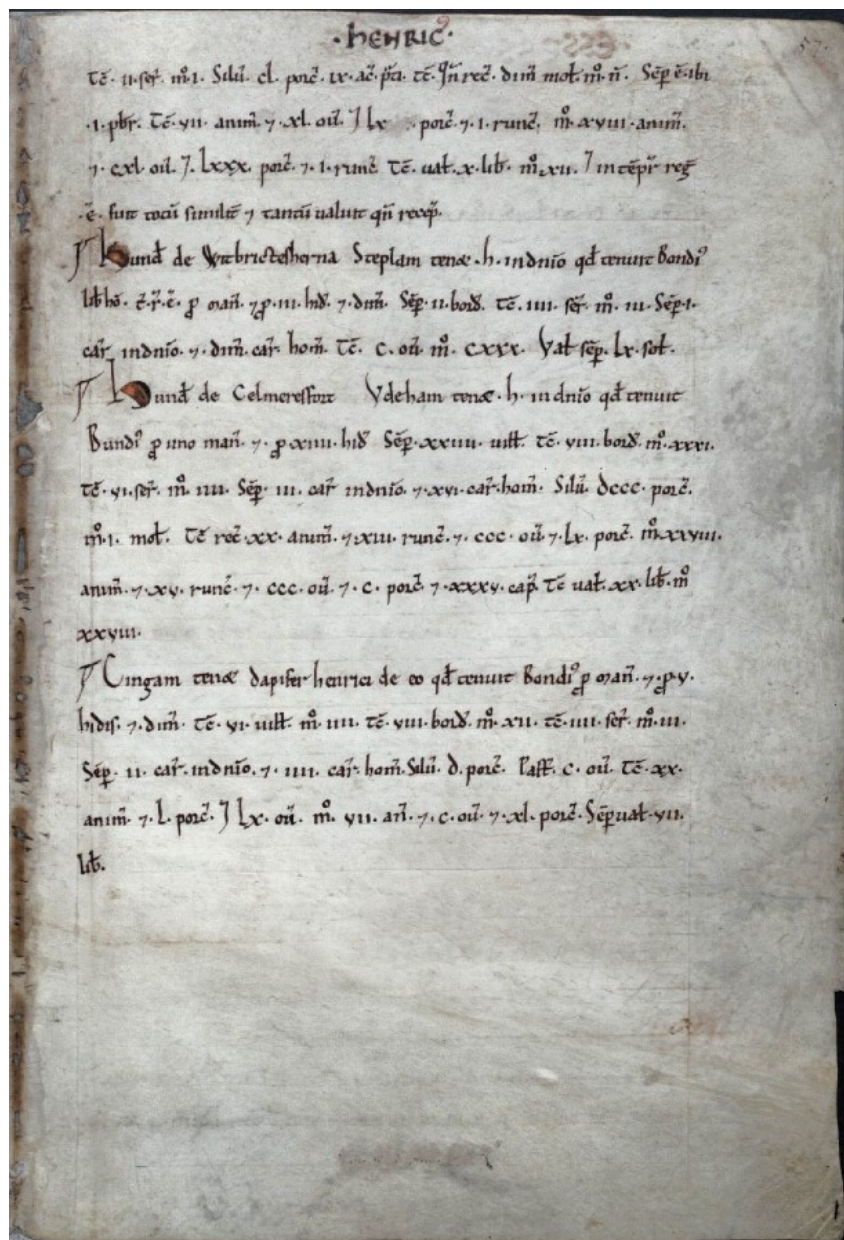 ·HENRIC9·
Tc̄· ıı· ser̄· m̊· ı· Silū· cl· porc̄· ıx· ac̄· p̄ti· tc̄· Qn̄ rec̄· dim̄ mol̄· m̊· n̄· Sēp ē ibi
·ı· pbr̄· Tc̄· vıı· anim̄· ⁊· xl· oū· ⁊ lx porc̄· ⁊· ı· runc̄· m̊· xvııı· anim̄·
⁊· cxl· oū· ⁊· lxxx· porc̄· ⁊· ı· runc̄ Tc̄· ual̄· x· lib̄· m̊· xıı· ⁊ in tēpr̄ reḡ
·ē· fuit totū similit̄ ⁊ tantū ualuit qn̄ recep̄·
Hund̄ de Witbrictesherna Steplam tenæ· h· in dn̄io qd̄ tenuit Bondi9
lib̄ hō· t̄· r̄· ē· ꝓ man̄· ⁊ ꝓ· ııı· hid̄· ⁊· dim̄· Sēp· ıı· bord̄· Tc̄· ıııı· ser̄· m̊· ııı· Sēp· ı·
car̄ in dn̄io· ⁊· dim̄· car̄· hom̄· Tc̄· c· oū· m̊· cxxx· Val̄ sēp· lx· sol̄·
Hund̄ de Celmeresfort Vdeham tenæ· h· in dn̄io qd̄ tenuit
Bundi9 ꝓ uno man̄· ⁊· ꝓ xıııı· hid̄ Sēp· xxıııı· uill̄· Tc̄· vııı· bord̄· m̊· xxxı·
Tc̄· vı· ser̄· m̊· ıııı· Sēp· ııı· car̄ in dn̄io· ⁊· xvı· car̄· hom̄· Silū· dccc· porc̄·
m̊· ı· mol̄· Tc̄ rec̄· xx· anim̄· ⁊· xııı· runc̄· ⁊· ccc· oū· ⁊· lx· porc̄· m̊· xxvııı·
anim̄· ⁊· xv· runc̄· ⁊· ccc· oū· ⁊· c· porc̄· ⁊· xxxv· cap̄· Tc̄ ual̄· xx· lib̄· m̊
xxvııı·
Cingam tenæ dapifer henrici de eo qd̄ tenuit Bondi9 ꝓ man̄· ⁊· ꝓ v·
hidis· ⁊· dim̄· Tc̄· vı· uill̄· m̊· ıııı· Tc̄· vııı· bord̄· m̊· xıı· tc̄· ıııı· ser̄· m̊· ııı·
Sēp· ıı· car̄· in dn̄io· ⁊· ıııı· car̄· hom̄· Silū· d· porc̄· Past̄· c· oū· Tc̄· xx·
anim̄· ⁊· l· porc̄· ⁊ lx· oū· m̊· vıı· an̄· ⁊· c· oū· ⁊· xl· porc̄· Sēp ual̄· vıı·
lib̄·